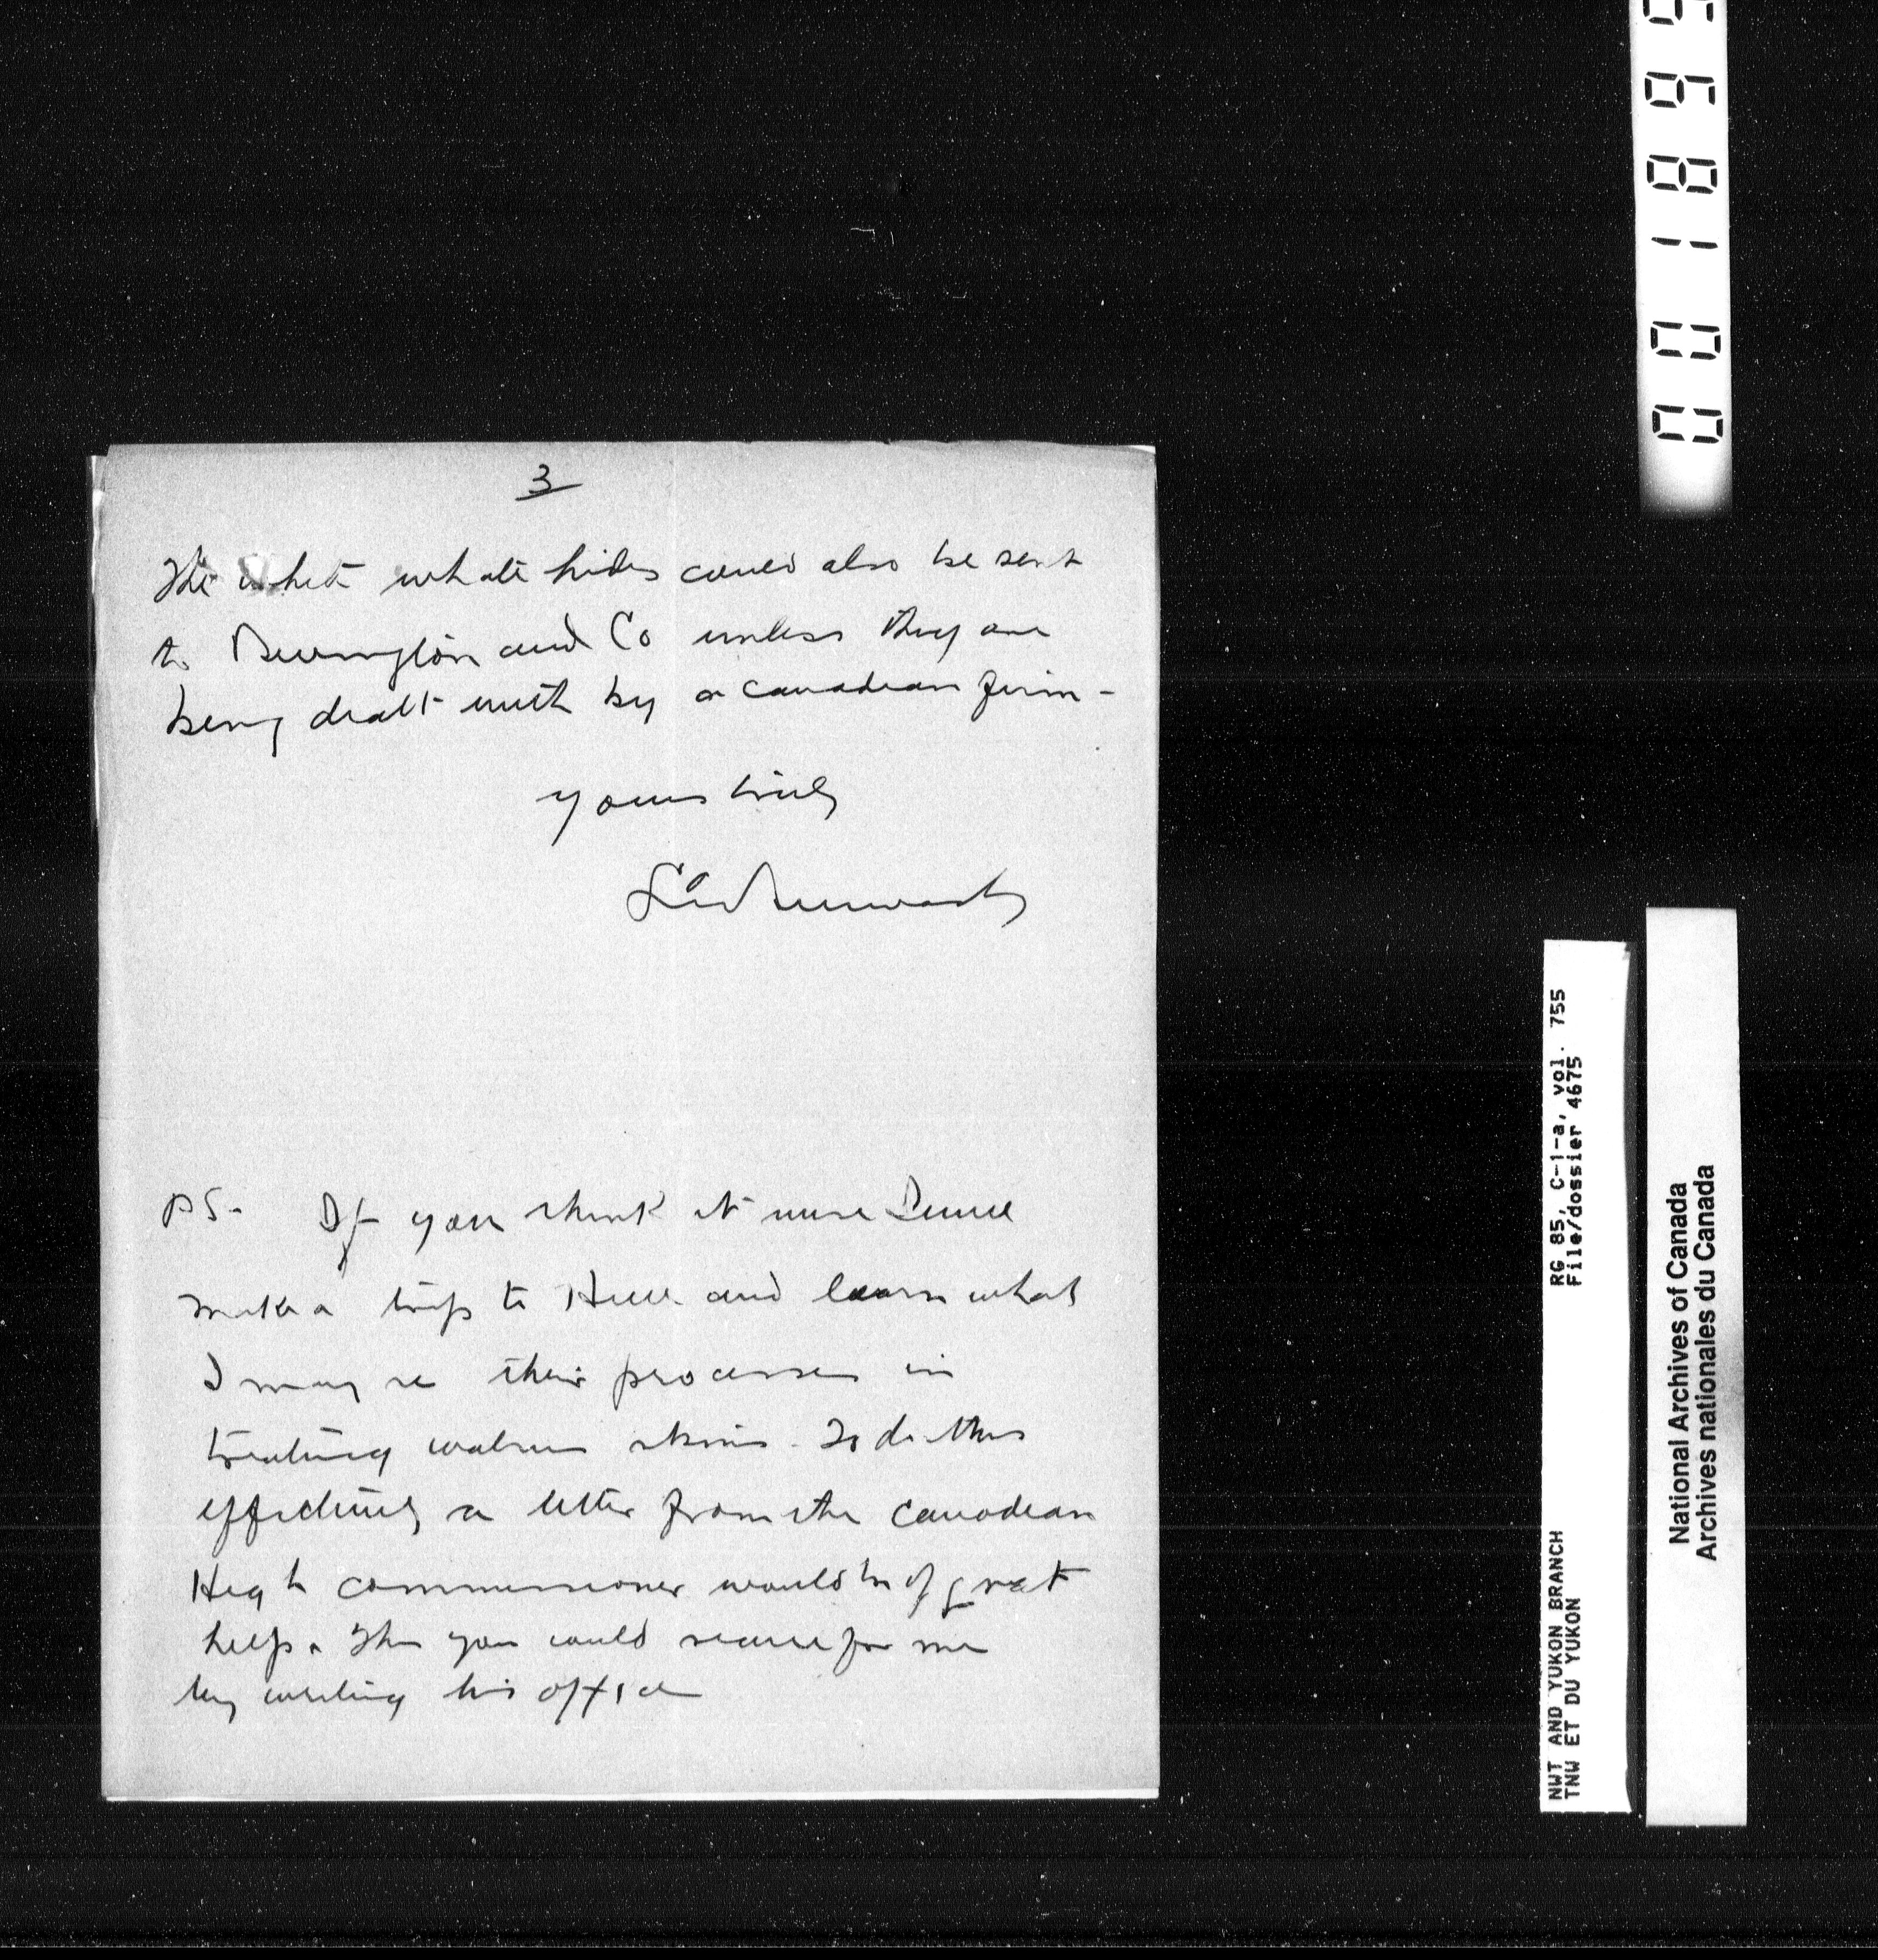 3
The white whale hides could also be sent
to and Co unless they are
being dealt with by a canadian firm -
yours truly
PS - If you think it wise I will
make a trip to Hull and learn what
I may re their processes in
treating walrus skins - To do this
effectively a letter from the Canadian
High Commissioner would be of great
help. This you could secure for me
by writing his office
001899
RG 85, C-1-a, vol. 755
File/dossier 4675
NWT AND YUKON BRANCH
TNW ET DU YUKON
National Archives of Canada
Archives nationales du Canada